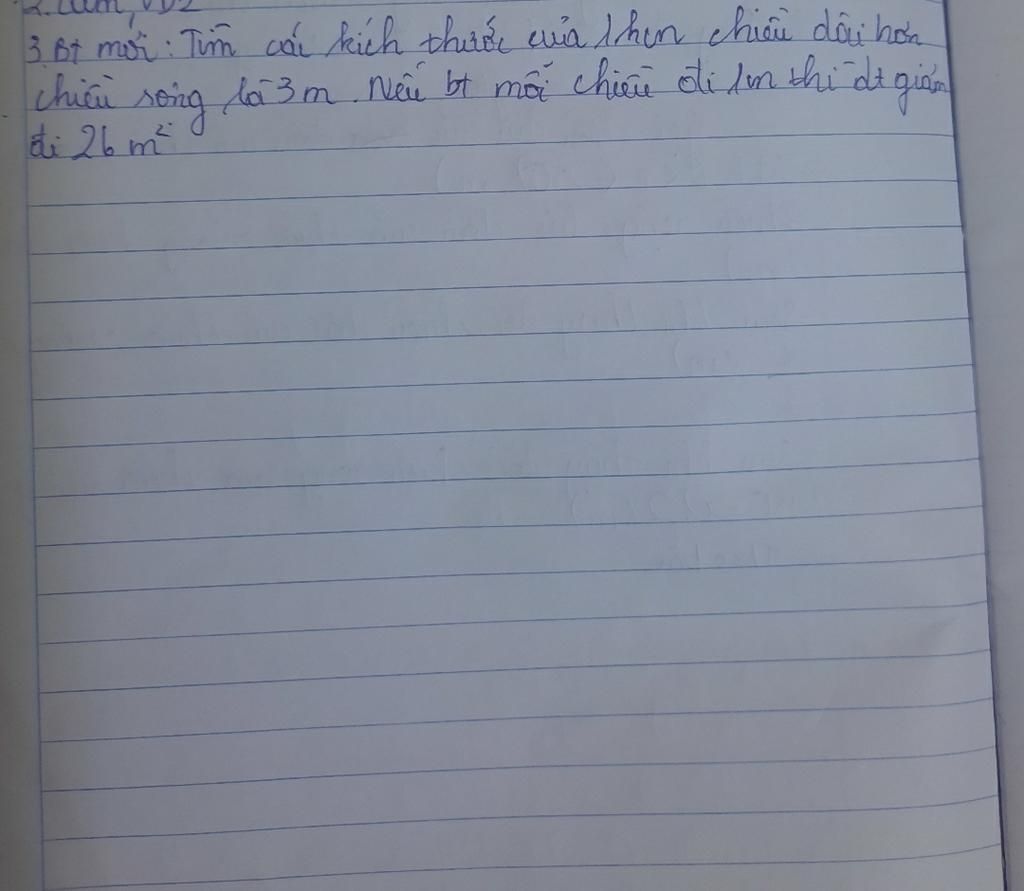 3. Bt mới: Tìm các kích thước của 1 hcn chiều dài hơn
chiều rộng là 3 m. Nếu bt mỗi chiều đi 1m thì dt giảm
đi 26 m²